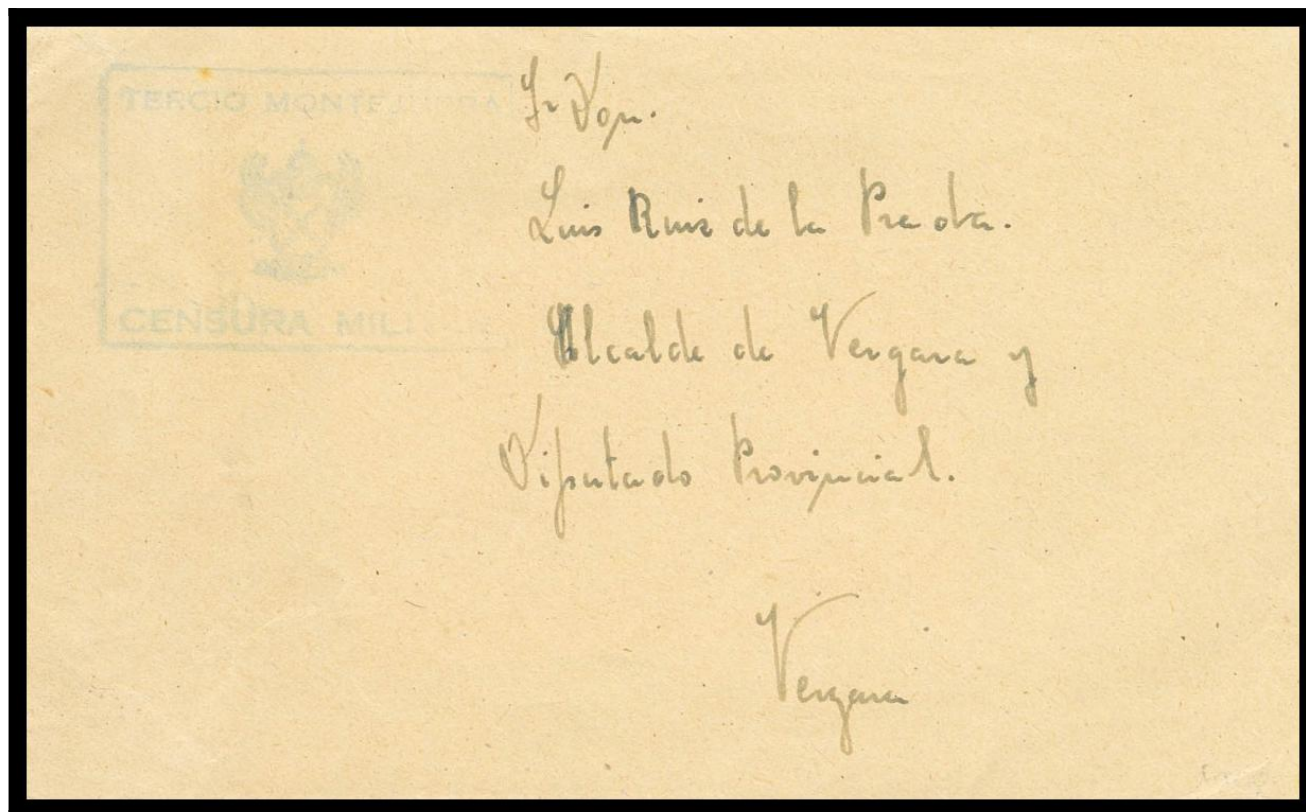 TERCIO MONTEJURRA
CENSURA MILITAR
Sr Don.
Luis Ruiz de la Prada.
Alcalde de Vergara y
Diputado Provincial.
Vergara